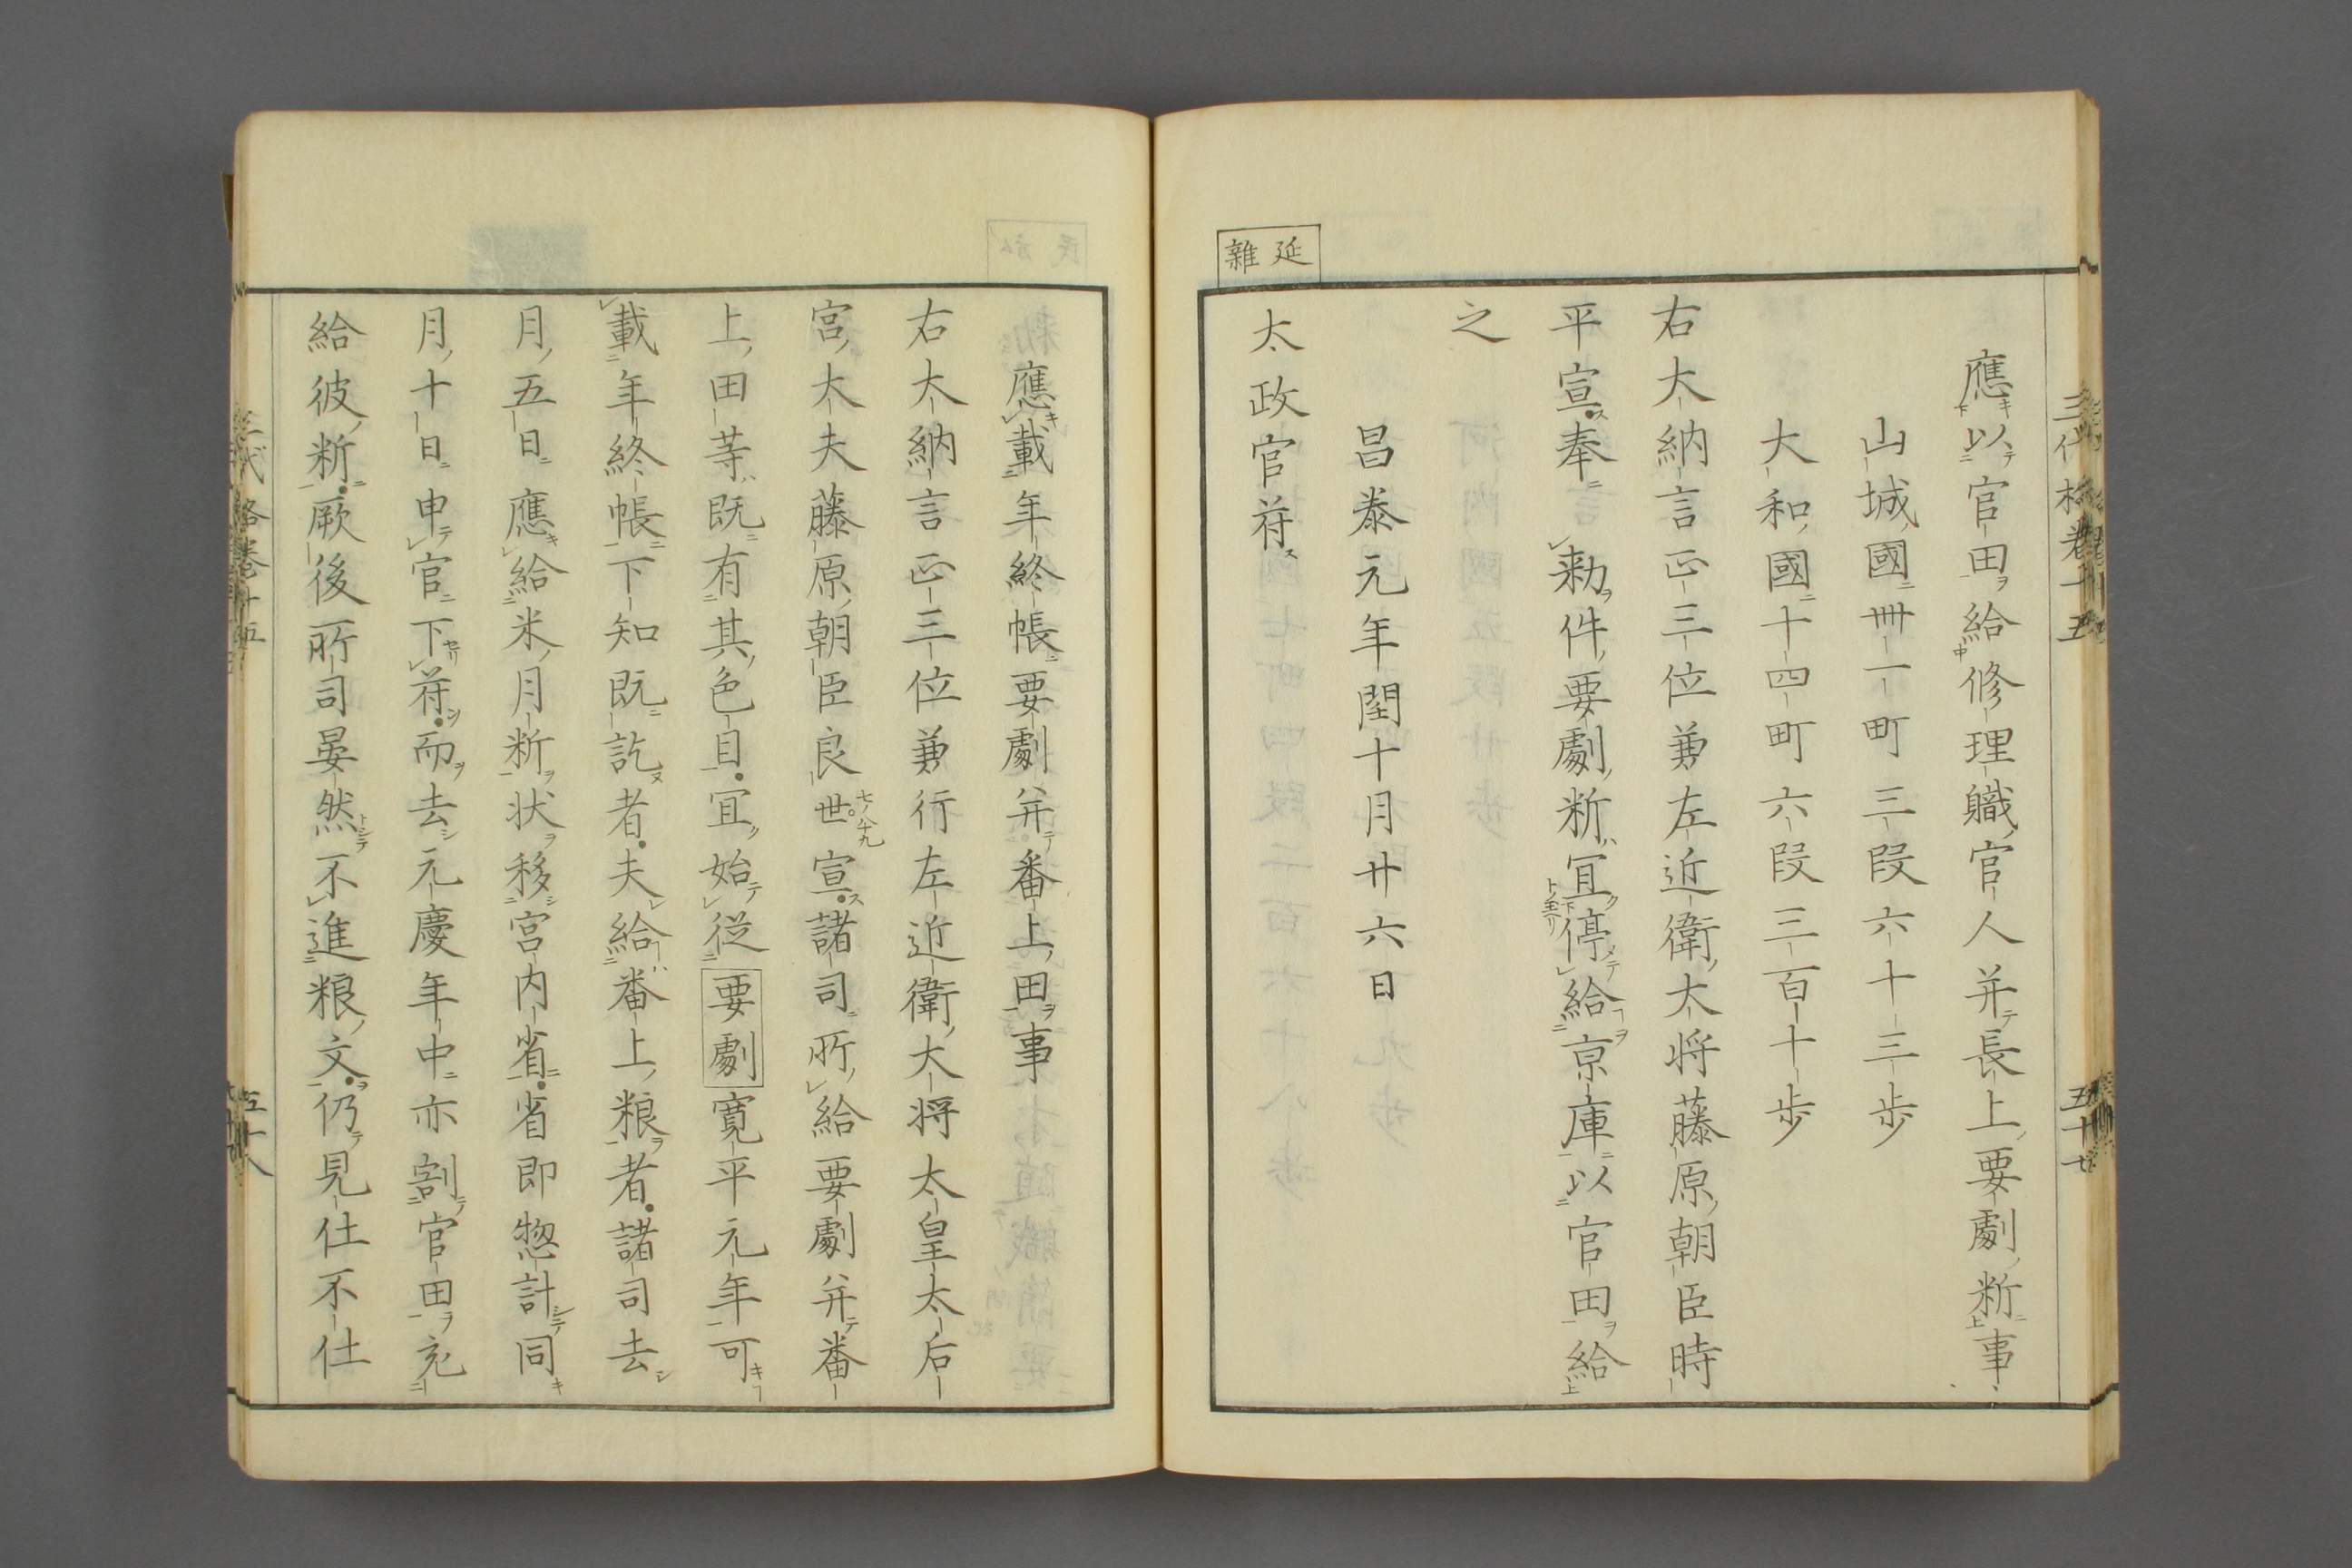 應以官田給修理職官人并長上要劇䉼事
山城國卌一町三段六十三歩
大和國十四町六段三百十歩
右大納言正三位兼左近衛大将藤原朝臣時
平宣奉　勅件要劇䉼宜停給京庫以官田給
之
昌泰元年閏十月廿六日
延雜
太政官符
應載年終帳要劇并番上田事
右大納言正三位兼行左近衛大将太皇太后
宮大夫藤原朝臣良世宣諸司所給要劇并番
上田等既有其色目宜始従要劇寛平元年可
載年終帳下知既訖者夫給番上粮者諸司去
月五日應給米月䉼状移宮内省省即惣計同
月十日申官下符而去元慶年中亦割官田充
給彼䉼厥後所司晏然不進粮文仍見仕不仕